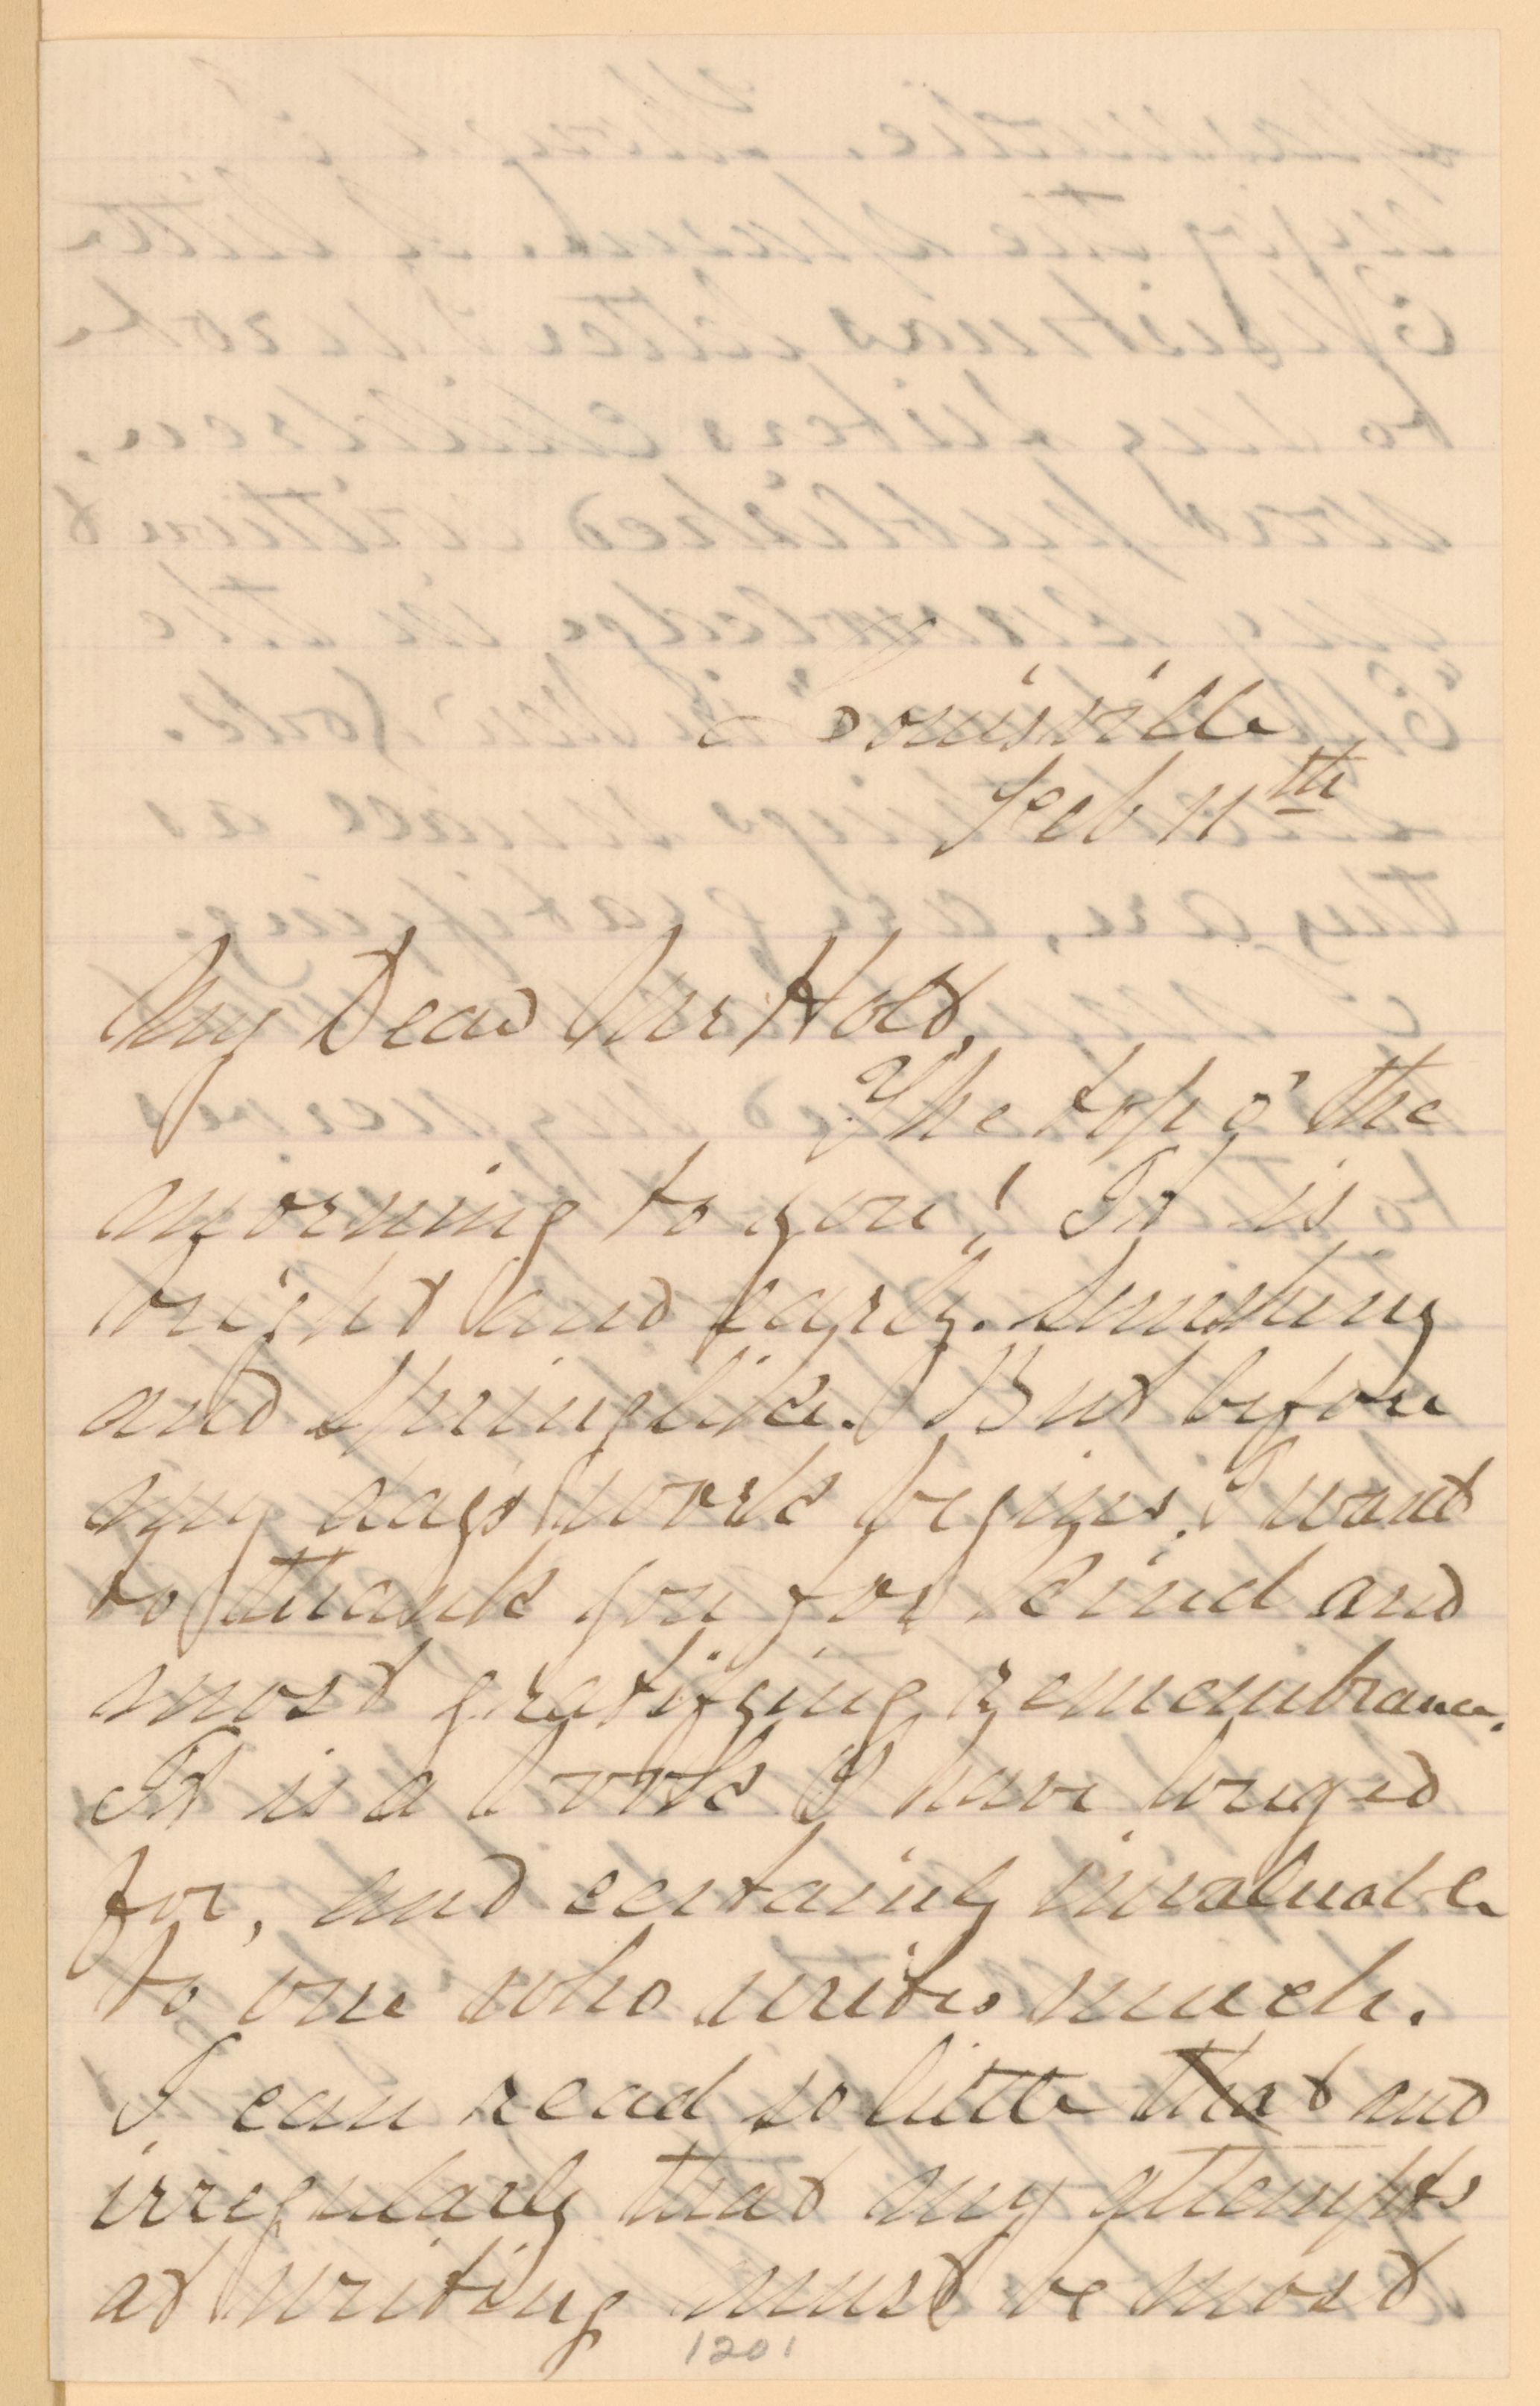 Louisville
Feb 11th
My Dear Mr Holt,
The top o' the
morning to you! It is
bright and early. Sunshiny
and Springlike. But before
my days work begins, I want
to thank you for kind and
most gratifying remembrance.
It is a book I have longed
for, and certainly invaluable
to one who writes much.
I can read so little that and
irregularly that my attempts
at writing must be most
1201